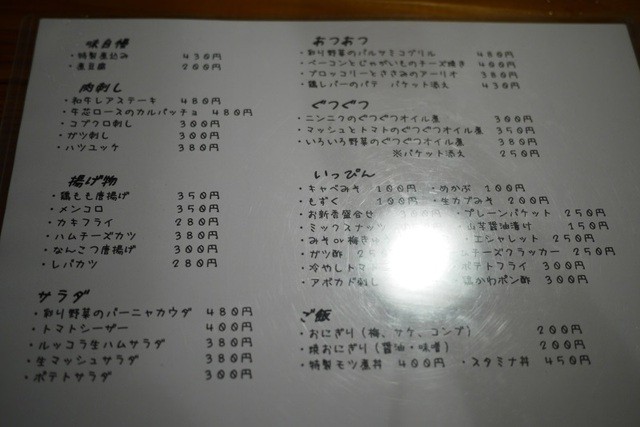 味自慢
・特製煮込み 430円
・煮豆腐 200円
肉刺し
・和牛レアステーキ 480円
・牛花ロースのカルパッチョ 480円
・コブクロ刺し 300円
・ガツ刺し 300円
・ハツユッケ 380円
揚げ物
・鶏もも唐揚げ 350円
・メンコロ 350円
・カキフライ 280円
・ハムチーズカツ 380円
・なんこつ唐揚げ 300円
・レバカツ 280円
サラダ
・彩り野菜のバーニャカウダ 480円
・トマトシーザー 400円
・ルッコラ生ハムサラダ 380円
・生マッシュサラダ 380円
・ポテトサラダ 300円
おつおつ
・彩り野菜のバルサミコグリル 480円
・ベーコンとじゃがいものチーズ焼き 400円
・ブロッコリーとささみのアーリオ 380円
・鶏レバーのパテ バケット添え 430円
ぐつぐつ
・ニンニクのぐつぐつオイル煮 300円
・マッシュとトマトのぐつぐつオイル煮 350円
・いろいろ野菜のぐつぐつオイル煮 380円
※バケット添え 250円
いっぴん
・キャベみそ 100円 ・めかぶ 100円
・もずく 100円 ・生カブみそ 200円
・お新香盛合せ 300円 ・プレーンバケット 250円
・ミックスナッツ 山芋醤油漬け 150円
・みそor梅き エシャレット 250円
・ガツ酢 25 チーズクラッカー 250円
・冷やしトマ ポテトフライ 300円
・アボカド刺し 鶏かわポン酢 300円
ご飯
・おにぎり(梅、サケ、コンブ) 200円
・焼おにぎり(醤油・味噌) 200円
・特製モツ煮丼 400円 ・スタミナ丼 450円